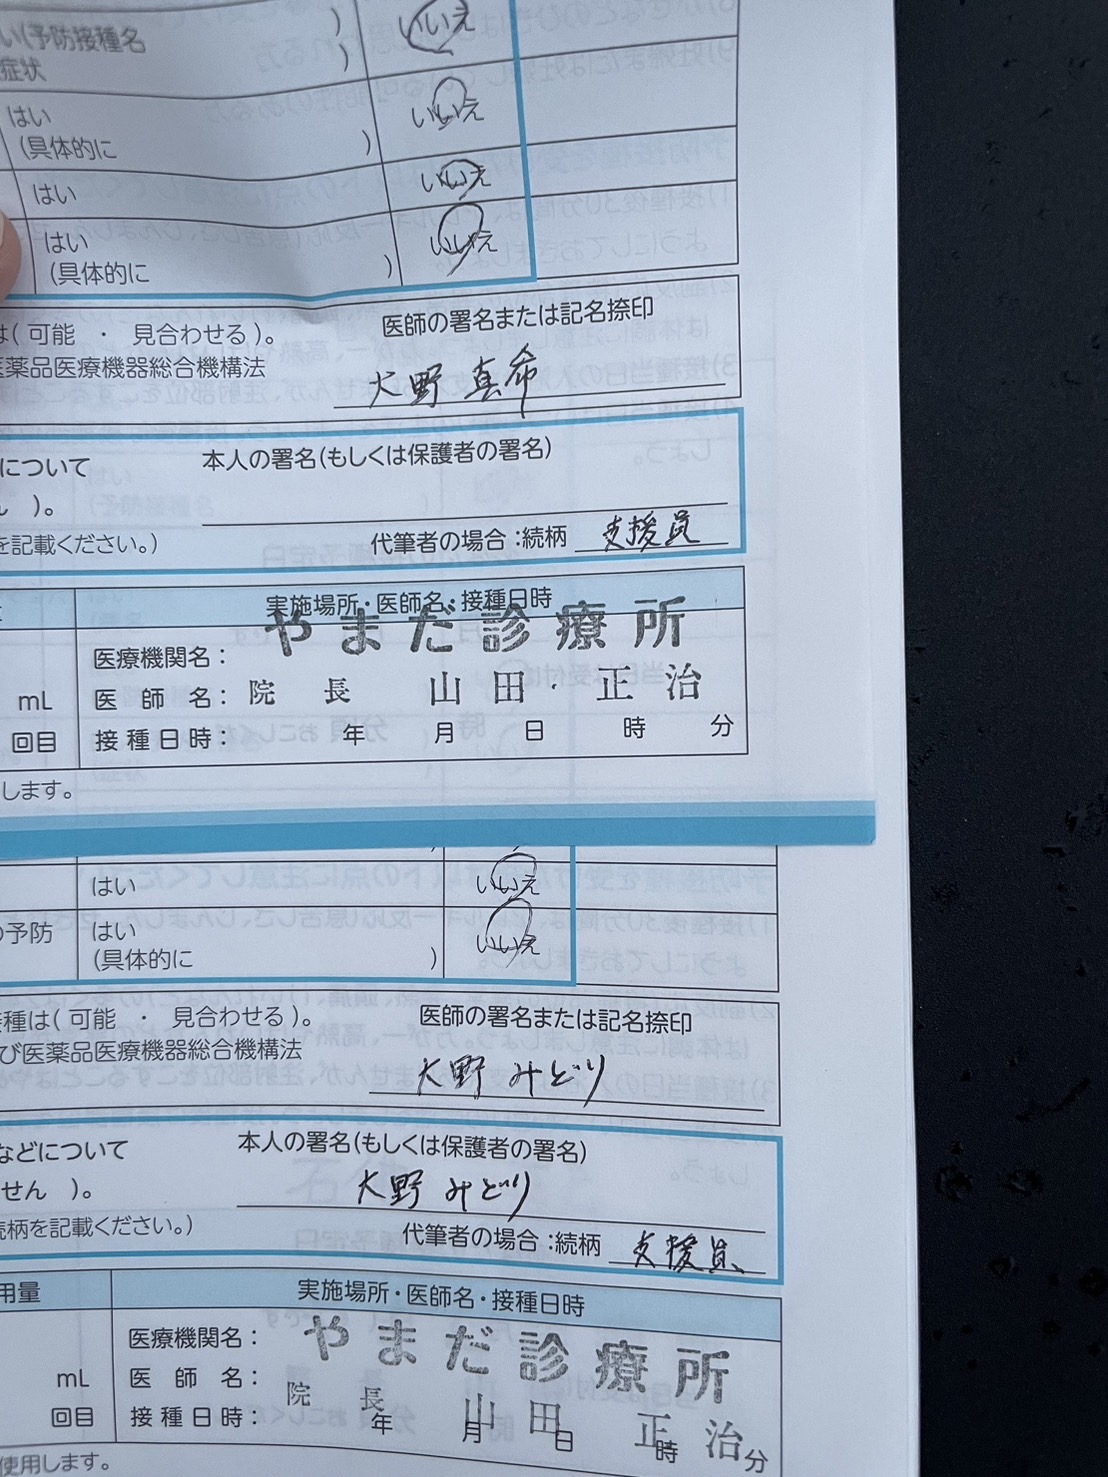 い(予防接種名 )
症状 )
いいえ
はい
(具体的に )
いいえ
はい
いいえ
はい
(具体的に )
いいえ
は(可能 ・ 見合わせる)。
医薬品医療機器総合機構法
医師の署名または記名捺印
大野 真希
について
)。
を記載ください。)
本人の署名(もしくは保護者の署名)
代筆者の場合:続柄 支援員
実施場所・医師名・接種日時
やまだ診療所
医療機関名:
mL
医師名: 院長 山田 正治
回目
接種日時: 年 月 日 時 分
します。
はい
いいえ
の予防
はい
(具体的に )
いいえ
接種は(可能 ・ 見合わせる)。
び医薬品医療機器総合機構法
医師の署名または記名捺印
大野 みどり
などについて
せん )。
続柄を記載ください。)
本人の署名(もしくは保護者の署名)
大野 みどり
代筆者の場合:続柄 支援員
用量
実施場所・医師名・接種日時
医療機関名: やまだ診療所
mL
医師名: 院長 山田 正治
回目
接種日時: 年 月 日 時 分
使用します。